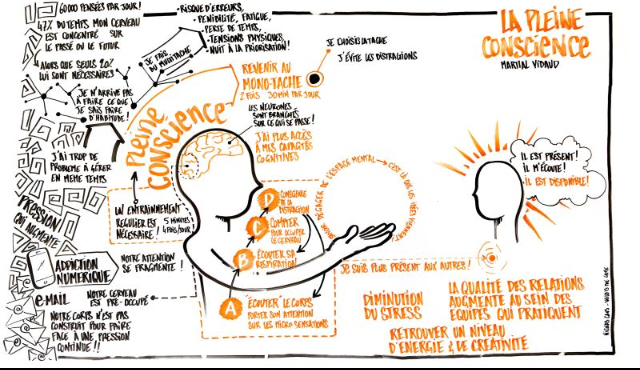 60000 PENSÉES PAR JOUR!
47% DU TEMPS MON CERVEAU
EST CONCENTRÉ SUR
LE PASSÉ OU LE FUTUR
ALORS QUE SEULS 20%
LUI SONT NÉCESSAIRES
JE N'ARRIVE PAS
À FAIRE CE QUE
JE SAIS FAIRE
D'HABITUDE!
J'AI TROP DE
PROBLÈME À GÉRER
EN MÊME TEMPS
PRESSION
QUI AUGMENTE
ADDICTION
NUMÉRIQUE
NOTRE ATTENTION
SE FRAGMENTE!
e-MAIL
NOTRE CERVEAU
EST PRÉ-OCCUPÉ
NOTRE CORPS N'EST PAS
CONSTRUIT POUR FAIRE
FACE À UNE PRESSION
CONTINUE!!
JE FAIS
DU MULTITÂCHE
RISQUE D'ERREURS,
PÉNIBILITÉ, FATIGUE,
PERTE DE TEMPS,
TENSIONS PHYSIQUES,
NUIT À LA PRIORISATION!
REVENIR AU
MONO-TÂCHE
2 FOIS 30MIN PAR JOUR
JE CHOISIS LA TÂCHE
J'ÉVITE LES DISTRACTIONS
PLEINE
CONSCIENCE
LES NEURONES
SONT BRANCHÉS
SUR CE QUI SE PASSE!
J'AI PLUS ACCÈS
À MES CAPACITÉS
COGNITIVES
UN ENTRAINEMENT
RÉGULIER EST
NÉCESSAIRE!
5 MINUTES
4 FOIS/JOUR!
D CONSCIENCE
DE LA
DISTRACTION
C COMPTER
POUR OCCUPER
LE CERVEAU
B ÉCOUTER SA
RESPIRATION!
A ÉCOUTER LE CORPS
PORTER SON ATTENTION
SUR LES MICRO SENSATIONS
DÉGAGER DE L'ESPACE MENTAL
LA PLEINE
CONSCIENCE
MARTIAL VIDAUD
IL EST PRÉSENT!
IL M'ÉCOUTE!
IL EST DISPONIBLE!
JE SUIS PLUS PRÉSENT AUX AUTRES!
DIMINUTION
DU STRESS
LA QUALITÉ DES RELATIONS
AUGMENTE AU SEIN DES
ÉQUIPES QUI PRATIQUENT
RETROUVER UN NIVEAU
D'ÉNERGIE & DE CRÉATIVITÉ